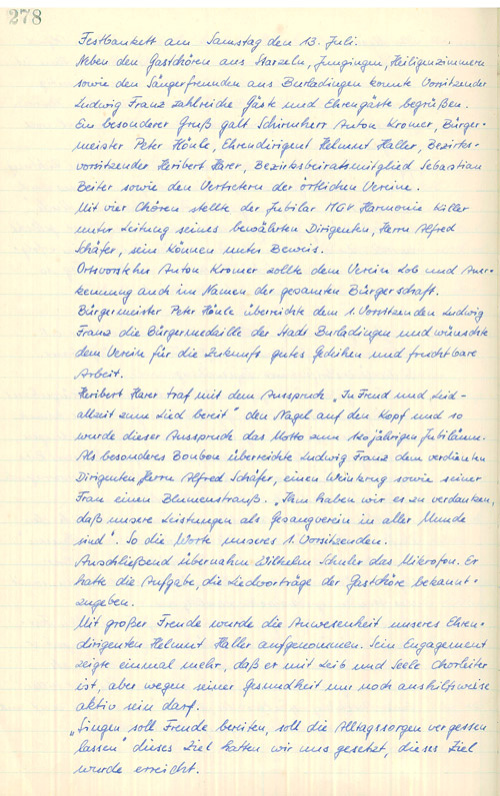 278
Festbankett am Samstag den 13. Juli.
Neben den Gastchören aus Starzeln, Jungingen, Heiligenzimmern
sowie den Sängerfreunden aus Burladingen konnte Vorsitzender
Ludwig Franz zahlreiche Gäste und Ehrengäste begrüßen.
Ein besonderer Gruß galt Schirmherr Anton Kromer, Bürger-
meister Peter Hönle, Ehrendirigent Helmut Haller, Bezirks-
vorsitzender Heribert Harer, Bezirksbeiratsmitglied Sebastian
Beiter sowie den Vertretern der örtlichen Vereine.
Mit vier Chören stellte der Jubilar MGV Harmonie Killer
unter Leitung seines bewährten Dirigenten, Herrn Alfred
Schäfer, sein Können unter Beweis.
Ortsvorsteher Anton Kromer zollte dem Verein Lob und Aner-
kennung auch im Namen der gesamten Bürgerschaft.
Bürgermeister Peter Hönle überreichte dem 1. Vorsitzenden Ludwig
Franz die Bürgermedaille der Stadt Burladingen und wünschte
dem Verein für die Zukunft gutes Gedeihen und fruchtbare
Arbeit.
Heribert Harer traf mit dem Ausspruch „In Freud und Leid -
allzeit zum Lied bereit" den Nagel auf den Kopf und so
wurde dieser Ausspruch das Motto zum 120 jährigen Jubiläum.
Als besonderes Bonbon überreichte Ludwig Franz dem verdienten
Dirigenten, Herrn Alfred Schäfer, einen Weinkrug sowie seiner
Frau einen Blumenstrauß. „Ihm haben wir es zu verdanken,
daß unsere Leistungen als Gesangverein in aller Munde
sind". So die Worte unseres 1. Vorsitzenden.
Anschließend übernahm Wilhelm Schuler das Mikrofon. Er
hatte die Aufgabe, die Liedvorträge der Gastchöre bekannt-
zugeben.
Mit großer Freude wurde die Anwesenheit unseres Ehren-
dirigenten Helmut Haller aufgenommen. Sein Engagement
zeigte einmal mehr, daß er mit Leib und Seele Chorleiter
ist, aber wegen seiner Gesundheit nur noch aushilfsweise
aktiv sein darf.
„Singen soll Freude bereiten, soll die Alltagssorgen vergessen
lassen" dieses Ziel hatten wir uns gesetzt, dieses Ziel
wurde erreicht.